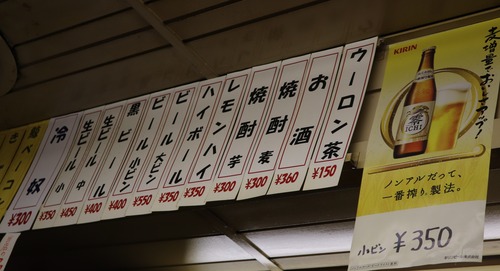 KIRIN
麦増量でおいしさアップ!
零
ICHI
ノンアルだって、
一番搾り製法。
小ビン ¥350
ウーロン茶 ¥150
お酒 ¥360
焼酎 麦 ¥300
焼酎 芋 ¥300
レモンハイ ¥350
ハイボール ¥350
ビール 大ビン ¥550
ビール 小ビン ¥400
黒ビール ¥400
生ビール 中 ¥450
生ビール 小 ¥350
冷奴 ¥300